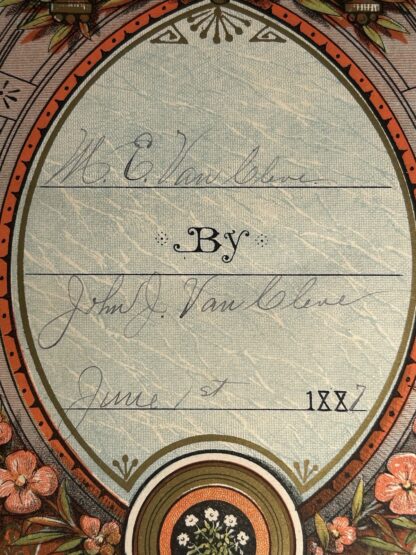 M. E. Van Cleve.
By
John J. Van Cleve
June 1st 1887